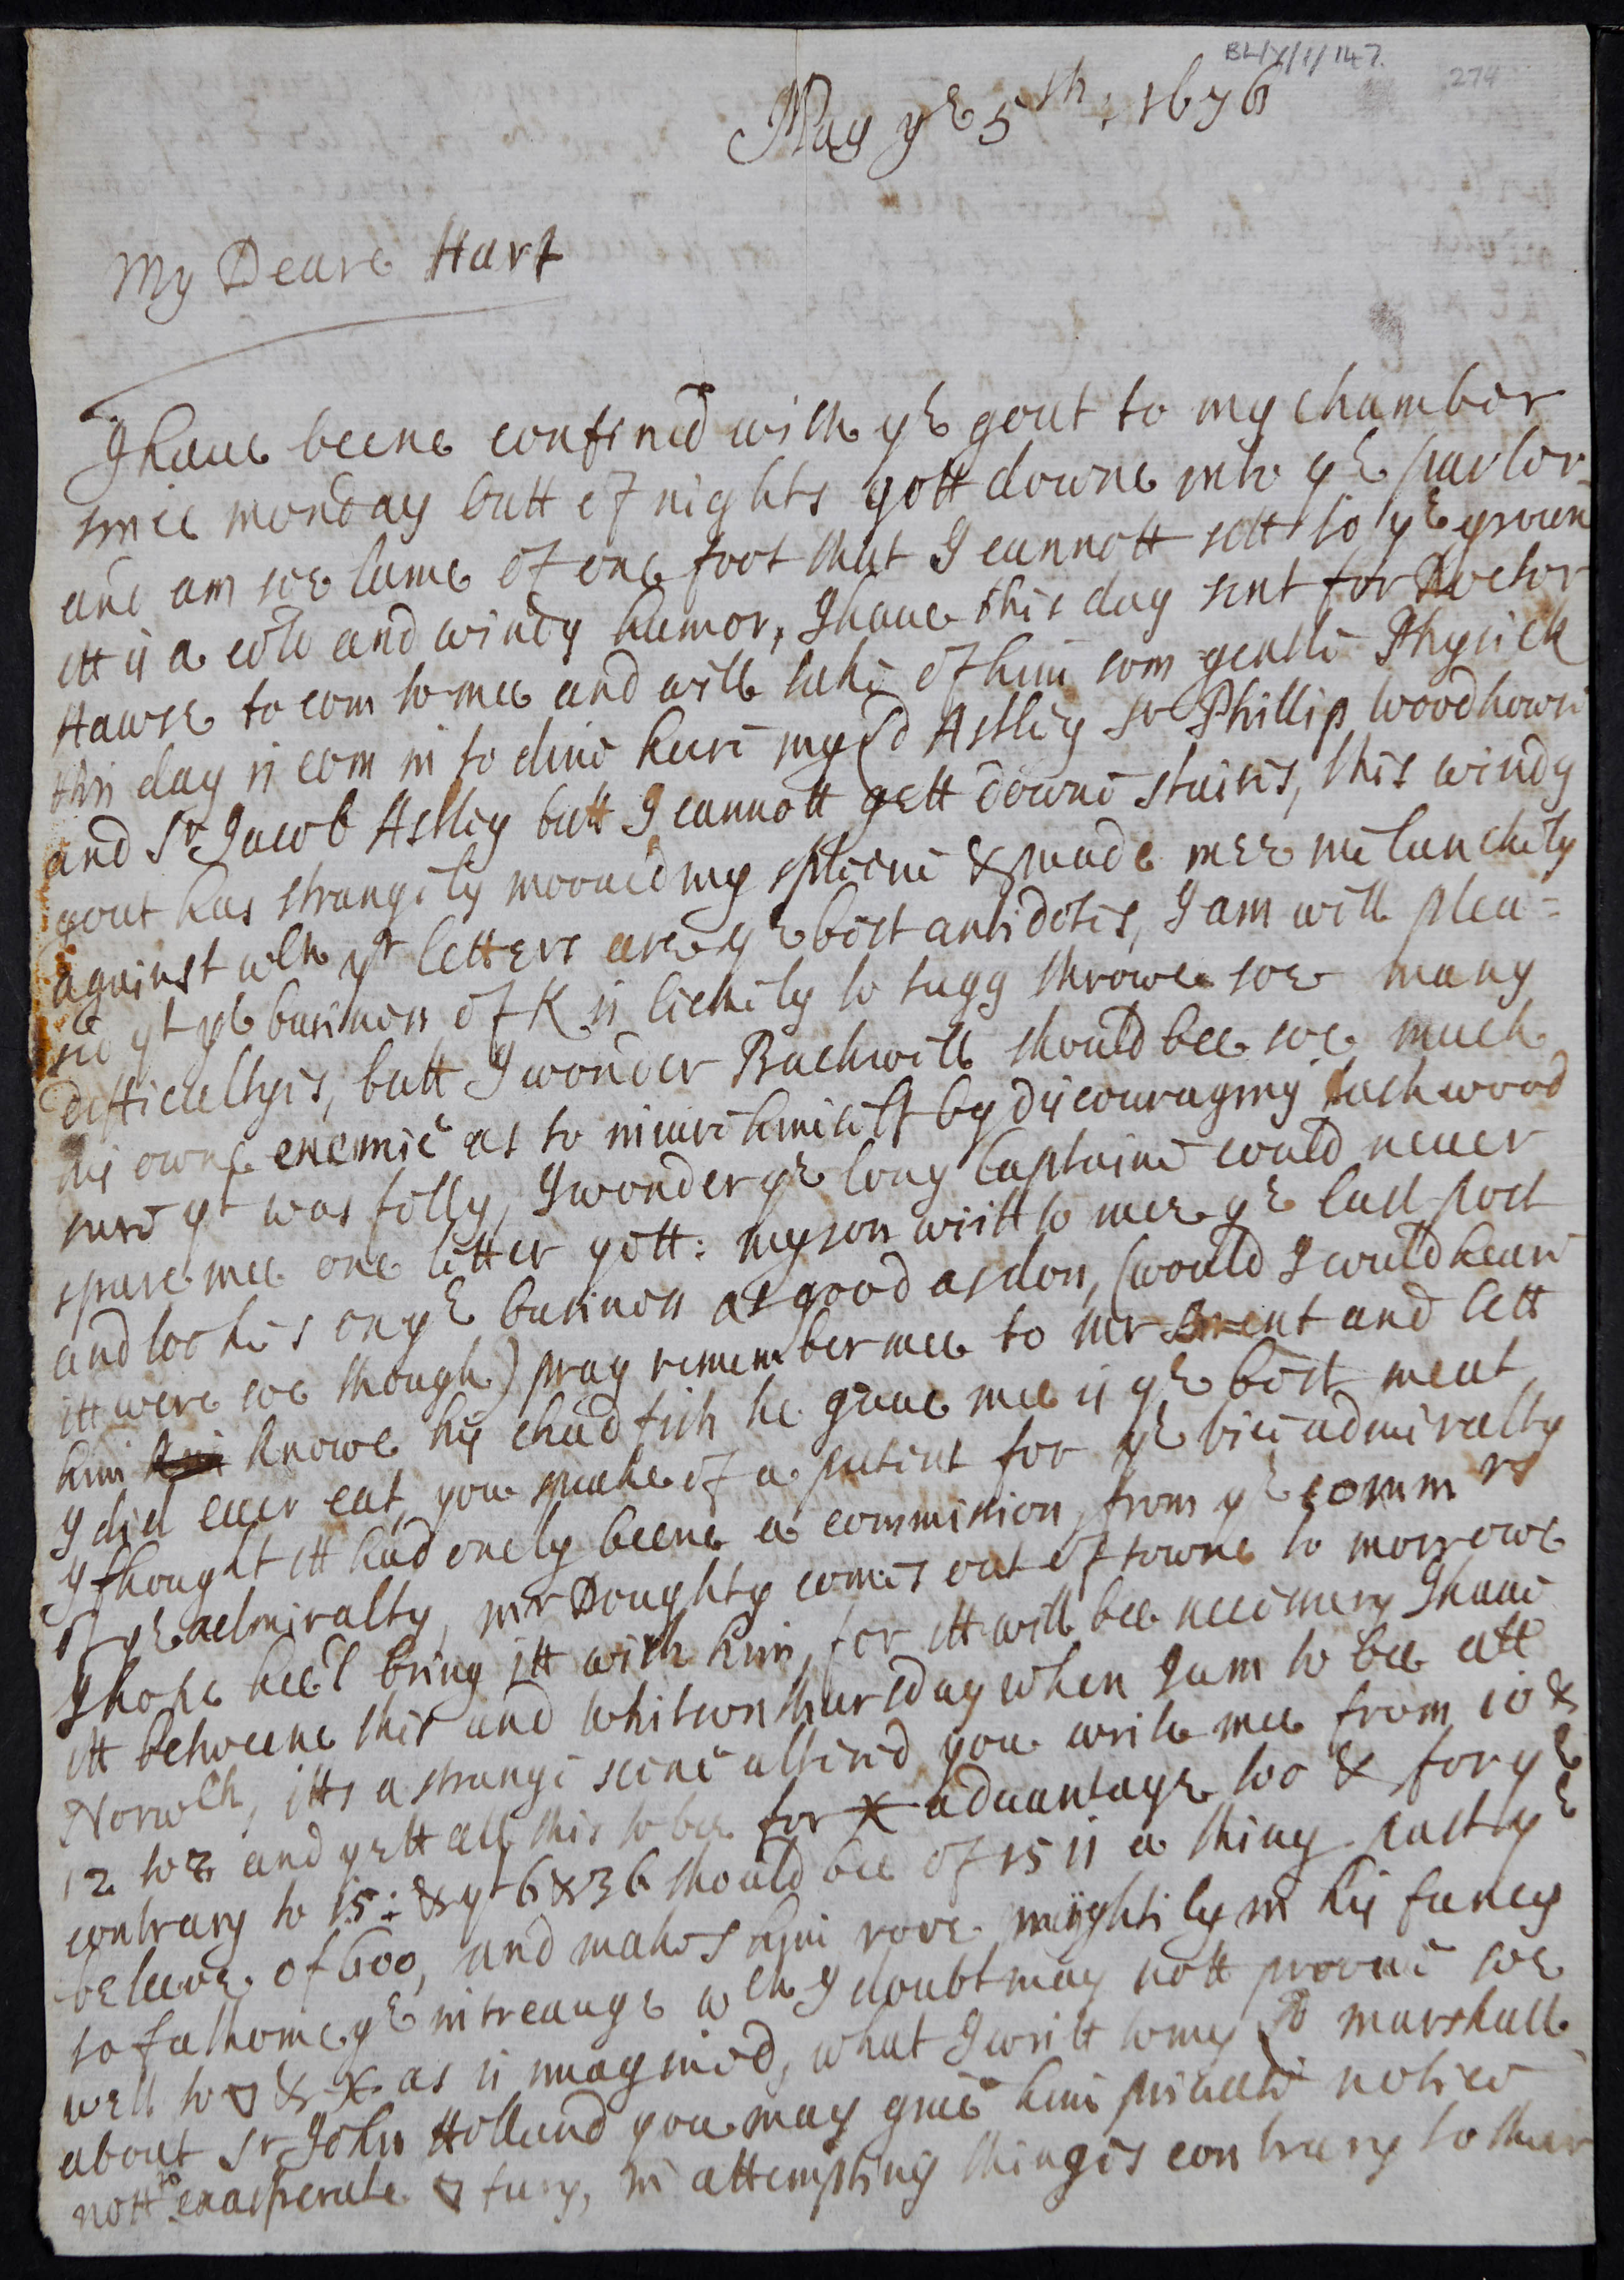 BL/Y/1/147.
274
May ye 5th: 1676
My Deare Hart
I haue beene confined with ye gout to my chamber
since monday butt of nights gott downe into ye parlor
and am soe lame of one foot that I cannott sett to ye groun
itt is a cold and windy humor, I haue this day sent for Doctor
Hawse to com to mee and will take of him som gentle Physick
this day is com in to dine heare my Ld Astley Sr Phillip woodhowse
and Sr Jacob Astley butt I cannott gett downe staires, this windy
gout has strangely mooued my spleene & made mee melancholy
against wch yr letters are ye best antidotes, I am well plea=
sed yt ye business of K is lickely to tugg throwe soe many
difficultyes, butt I wonder Backwell should bee soe much
his owne enemie as to iniure himself by discouraging
sure yt was folly, I wonder ye long Captaine could neuer
spare mee one letter yett: my son writt to mee ye last post
and lookes on ye business as good as don, (would I could heare
itt were soe though) pray remember mee to mr Brent and lett
him him knowe his chad fish he gaue mee is ye best meat
I did euer eat, you speake of a patent for ye vice admiralty
I thought itt had onely beene a commission from ye commrs
of ye admiralty, mr Doughty comes out of towne to morrowe
I hope hee'l bring itt with him, for itt will bee necessary I haue
itt betweene this and whitson thursday when I am to bee att
Norwch, itts a strange scene altered you write mee from 10 &
12 to 2 and yett all this to bee for X aduantage too & for ye
contrary to 15: & yt 6 & 36 should bee of 15 is a thing past ye
beleeve of 600, and makes him rove mightily in his fancy
to fathome ye intreauge wch I doubt may nott prooue soe
well to & X as is imagined, what I writt to my Ld marshall
about Sr John Holland you may giue him priuate notice
nott to exasperate fury, in attempting things contrary to their